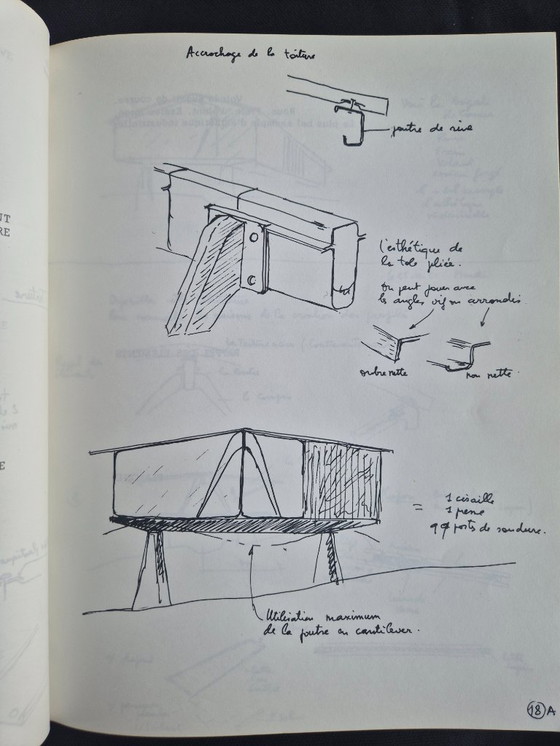 Accrochage de la toiture
poutre de rive
l'esthétique de
la tole pliée.
on peut jouer avec
les angles vifs ou arrondis
ombre nette
non nette
= 1 cisaille
1 presse
postes de soudure.
Utilisation maximum
de la poutre en cantilever.
18 A
UT
RE
E